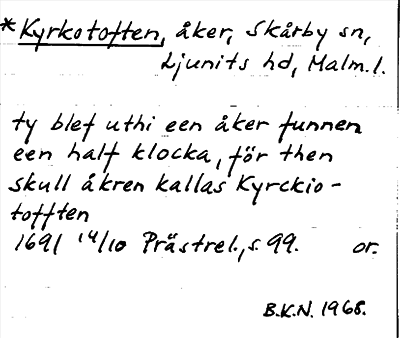 *Kyrkotoften, åker, Skårby sn,
Ljunits hd, Malm.l.
ty blef uthi een åker funnen
een half klocka, för then
skull åkren kallas Kyrckio-
tofften
1691 14/10 Prästrel., s. 99. or.
B.K.N. 1968.